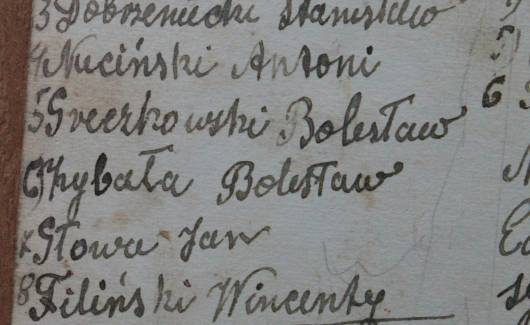 3 Dobrzeniecki Stanisław
4 Nuciński Antoni
5 Greczkowski Bolesław
6) Bolesław
7 Słowa Jan
8 Filiński Wincenty
6